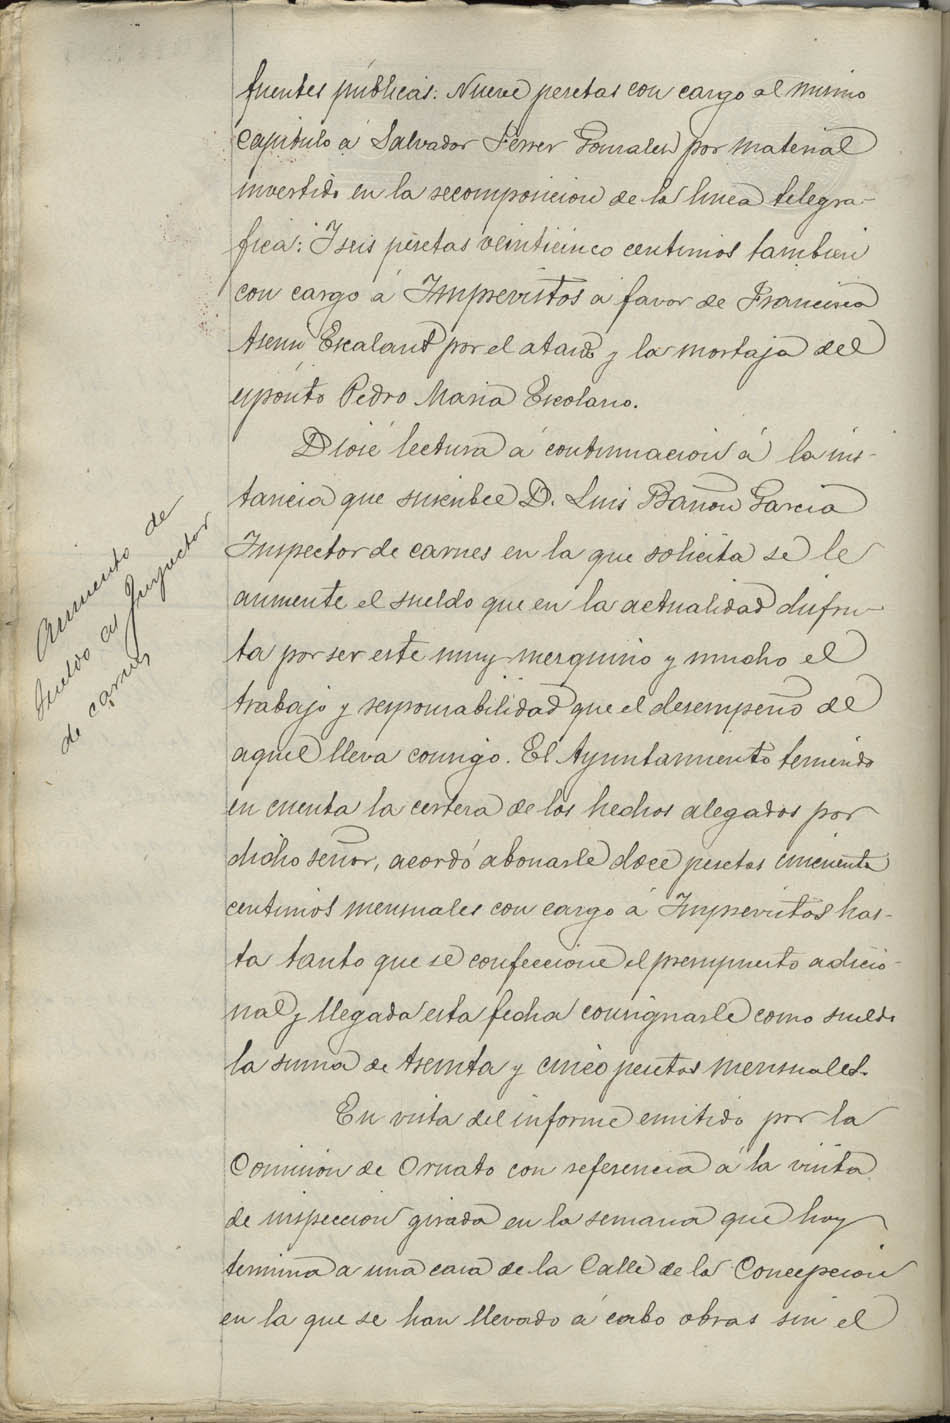 fuentes públicas: Nueve pesetas con cargo al mismo
Capitulo á Salvador Ferrer Gonzalez por material
invertido en la recomposicion de la linea telegra-
fica: Y seis pesetas veinticinco centimos tambien
con cargo á Imprevistos a favor de Francisco
Asenri Escalant por el ataud y la mortaja del
esposito Pedro Maria Escolano.
Dióse lectura á continuacion á la ins-
tancia que suscribe D. Luis Bañon Garcia
Inspector de carnes en la que solicita se le
aumente el sueldo que en la actualidad disfru-
ta por ser este muy mezquino y mucho el
trabajo y responsabilidad que el desempeño de
aquel lleva consigo. El Ayuntamiento teniendo
en cuenta la certeza de los hechos alegados por
dicho señor, acordó abonarle doce pesetas cincuenta
centimos mensuales con cargo á Imprevistos has-
ta tanto que se confeccione el presupuesto adicio-
nal y llegada esta fecha consignarle como sueldo
la suma de treinta y cinco pesetas mensuales.
En vista del informe emitido por la
Comision de Ornato con referencia á la visita
de inspeccion girada en la semana que hoy
termina a una casa de la Calle de la Concepcion
en la que se han llevado á cabo obras sin el
Aumento de
sueldo al Inspector
de carnes